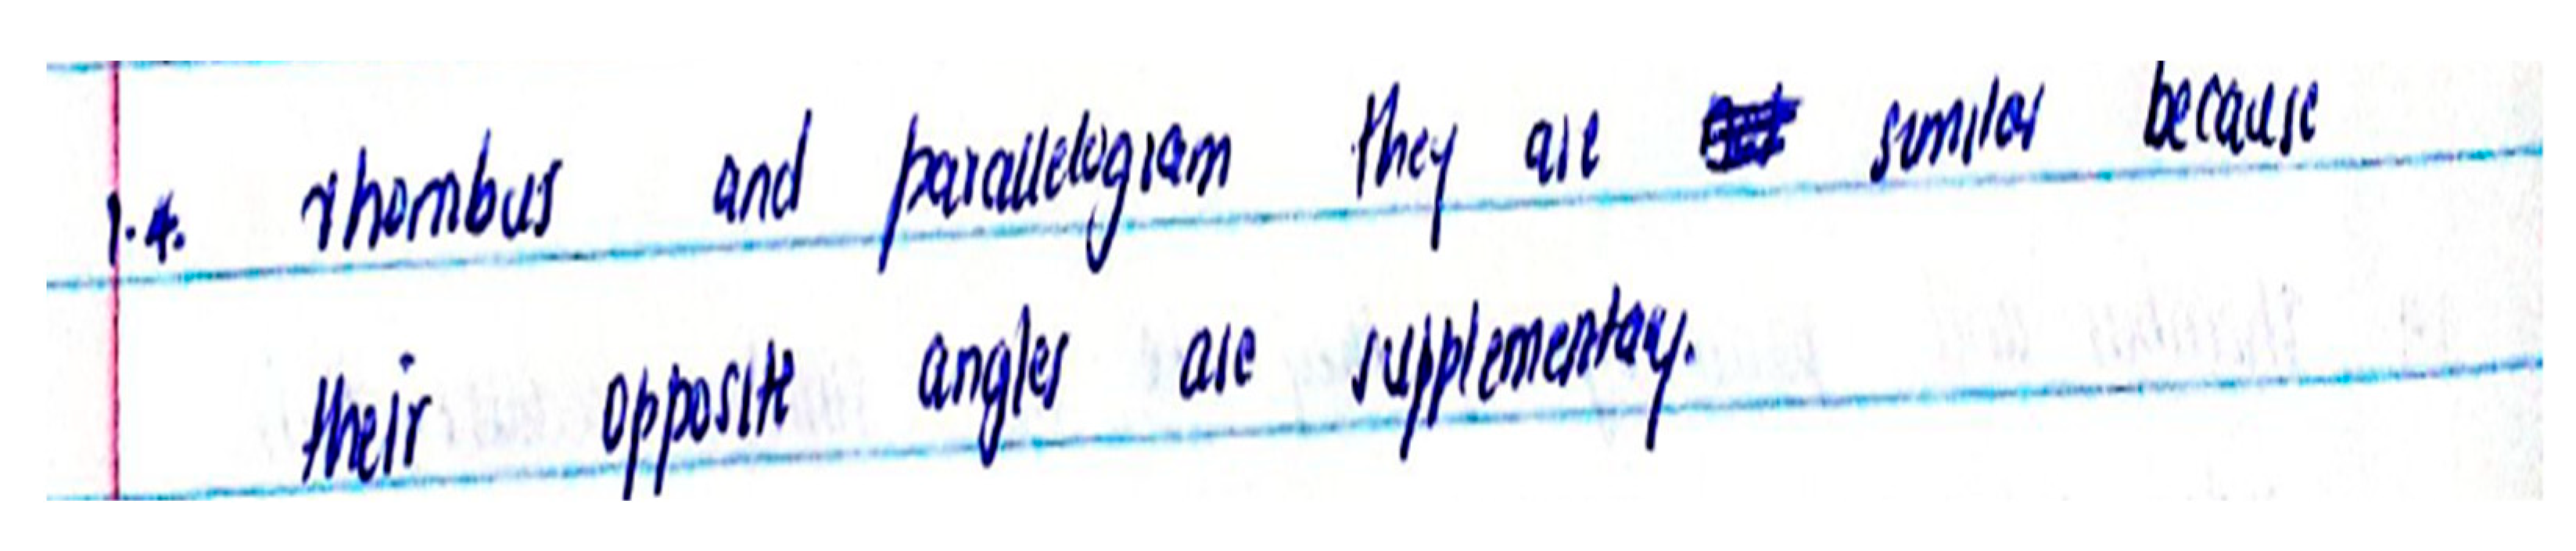 1.4. rhombus and parallelogram they are similar because
their opposite angles are supplementary.